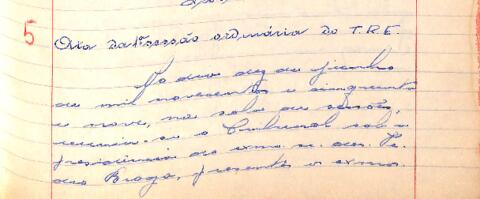 5
Ata da 1ª sessão ordinária do T.R.E.
Ao dias dez de junho
de mil novecentos e cinquenta
e nove, na sala de sessões,
reuniu-se o Tribunal sob a
presidência do exmo. sr. des. Pe-
dro Braga, presentes o exmo.